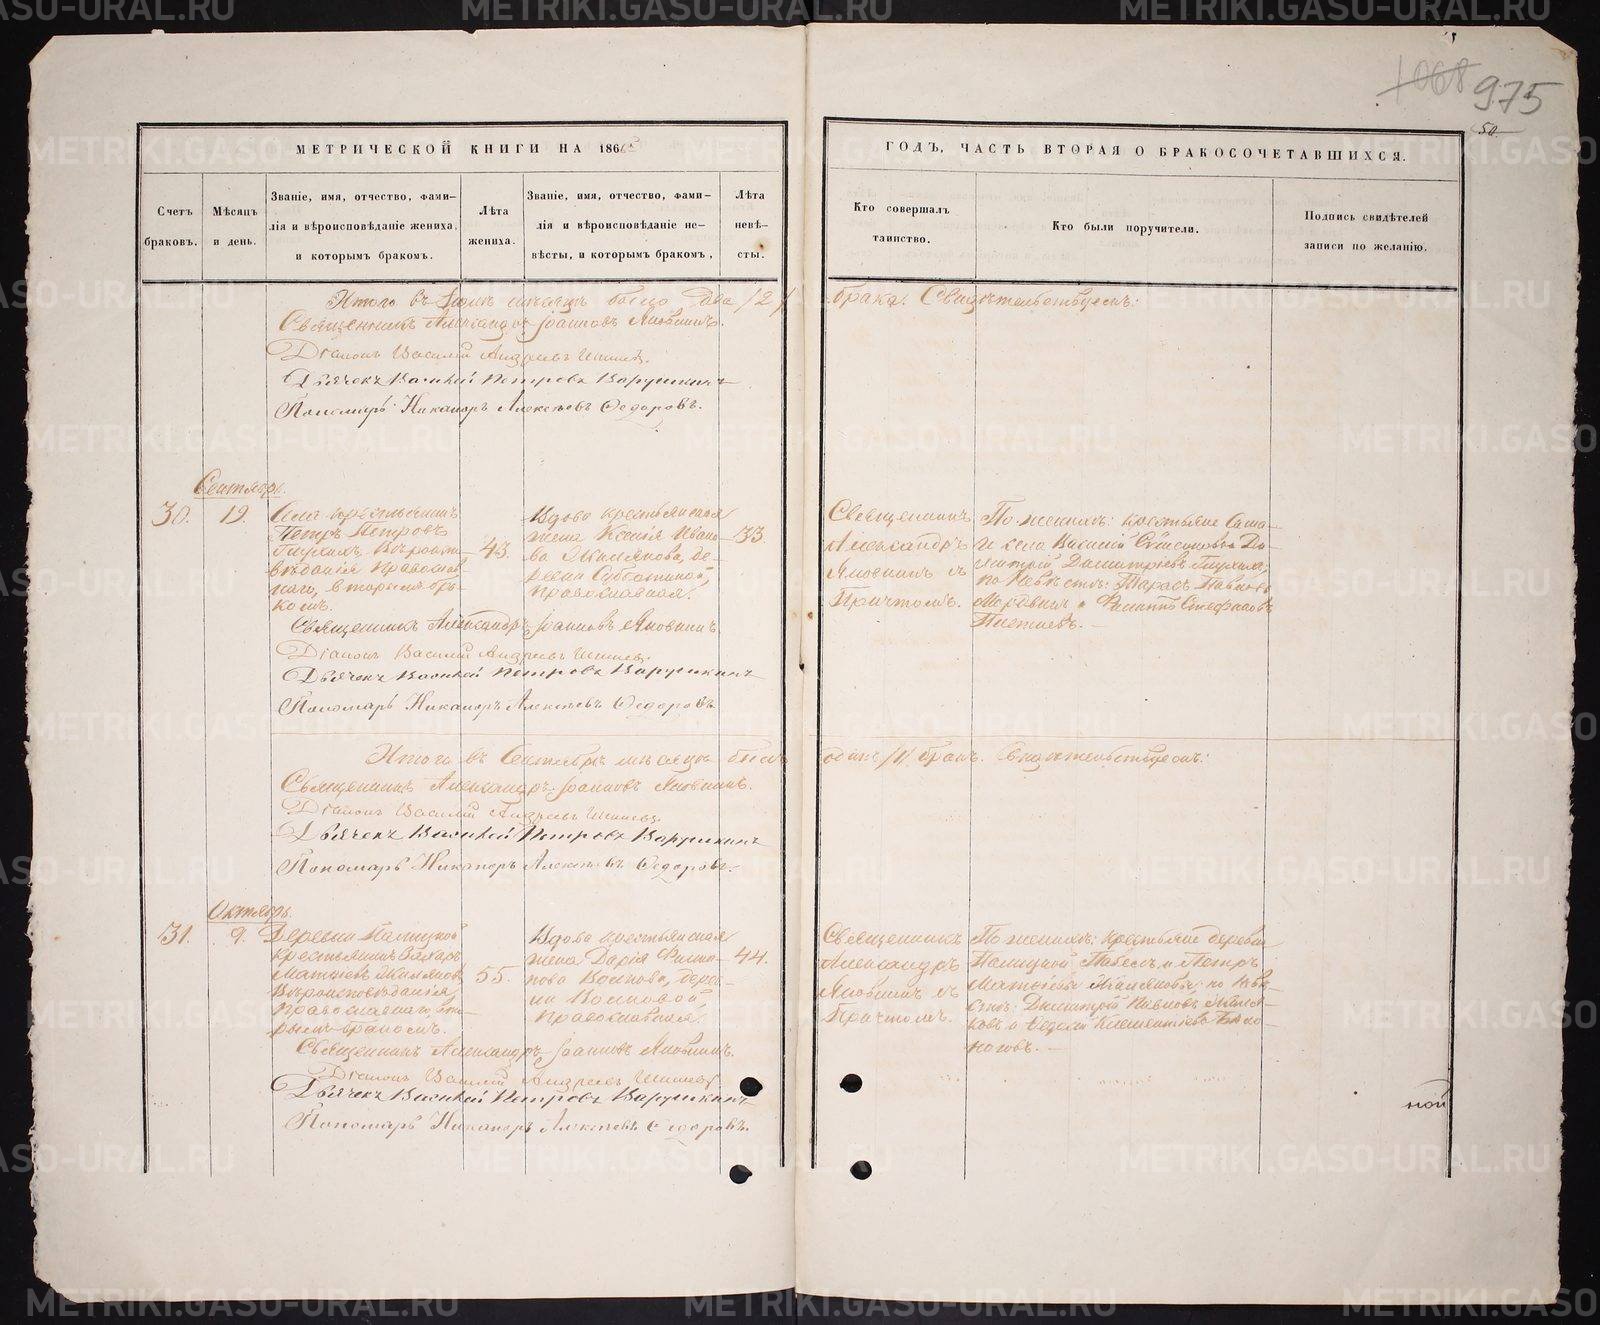 975
50
МЕТРИЧЕСКОЙ КНИГИ НА 186
ГОДЪ, ЧАСТЬ ВТОРАЯ О БРАКОСОЧЕТАВШИХСЯ.
Счетъ браковъ.
Мѣсяцъ и день.
Званіе, имя, отчество, фами-
лія и вѣроисповѣданіе жениха,
и которымъ бракомъ.
Лѣта жениха.
Званіе, имя, отчество, фами-
лія и вѣроисповѣданіе не-
вѣсты, и которымъ бракомъ,
Лѣта
невѣ-
сты.
Кто совершалъ
таинство.
Кто были поручители.
Подпись свидѣтелей
записи по желанію.
Итого въ мѣсяцѣ было два /2/
брака. Свидѣтельствуемъ:
Священникъ Александръ Іоанновъ
Діаконъ Василій Андреевъ
Дьячекъ Василей Петровъ Варушкинъ
Пономарь Никаноръ Алексѣевъ Ѳедоровъ.
Сентябрь.
30.
19.
Села крестьянинъ
Петръ Петровъ
Глухихъ, Вѣроиспо-
вѣданія Православ-
наго, вторымъ бра-
комъ.
43.
Вдова крестьянская
жена Ксенія Ивано-
ва де-
ревни Субботиной,
Православная.
33
Священникъ
Александръ
съ
Причтомъ.
По женихѣ: крестьяне
села Василій Да-
Дмитріевъ Глухихъ;
по Невѣстѣ: Тарасъ Павловъ
и Филиппъ Стефановъ
Священникъ Александръ Іоанновъ
Діаконъ Василій Андреевъ
Дьячекъ Василей Петровъ Варушкинъ
Пономарь Никаноръ Алексѣевъ Ѳедоровъ
Итого въ Сентябрѣ мѣсяцѣ былъ
одинъ /1/ бракъ. Свидѣтельствуемъ:
Священникъ Александръ Іоанновъ
Діаконъ Василій Андреевъ
Дьячекъ Василей Петровъ Варушкинъ
Пономарь Никаноръ Алексѣевъ Ѳедоровъ.
Октябрь.
31.
9.
Деревни Палицкой
крестьянинъ
Матѳіевъ
Вѣроисповѣданія
Православнаго, вто-
рымъ бракомъ.
55.
Вдова крестьянская
жена Дарія Филип-
пова Волкова, дерев-
ни Волковой,
Православная.
44.
Священникъ
Александръ
съ
Причтомъ.
По женихѣ: крестьяне деревни
Палицкой Павелъ и Петръ
Матѳіевы по Невѣ-
стѣ: Димитрій Павловъ
и Ѳедосій Климентіевъ Бѣло-
ноговъ.
Священникъ Александръ Іоанновъ
Діаконъ Василій Андреевъ
Дьячекъ Василей Петровъ Варушкинъ
Пономарь Никаноръ Алексѣевъ Ѳедоровъ.
ной
METRIKI.GASO-URAL.RU